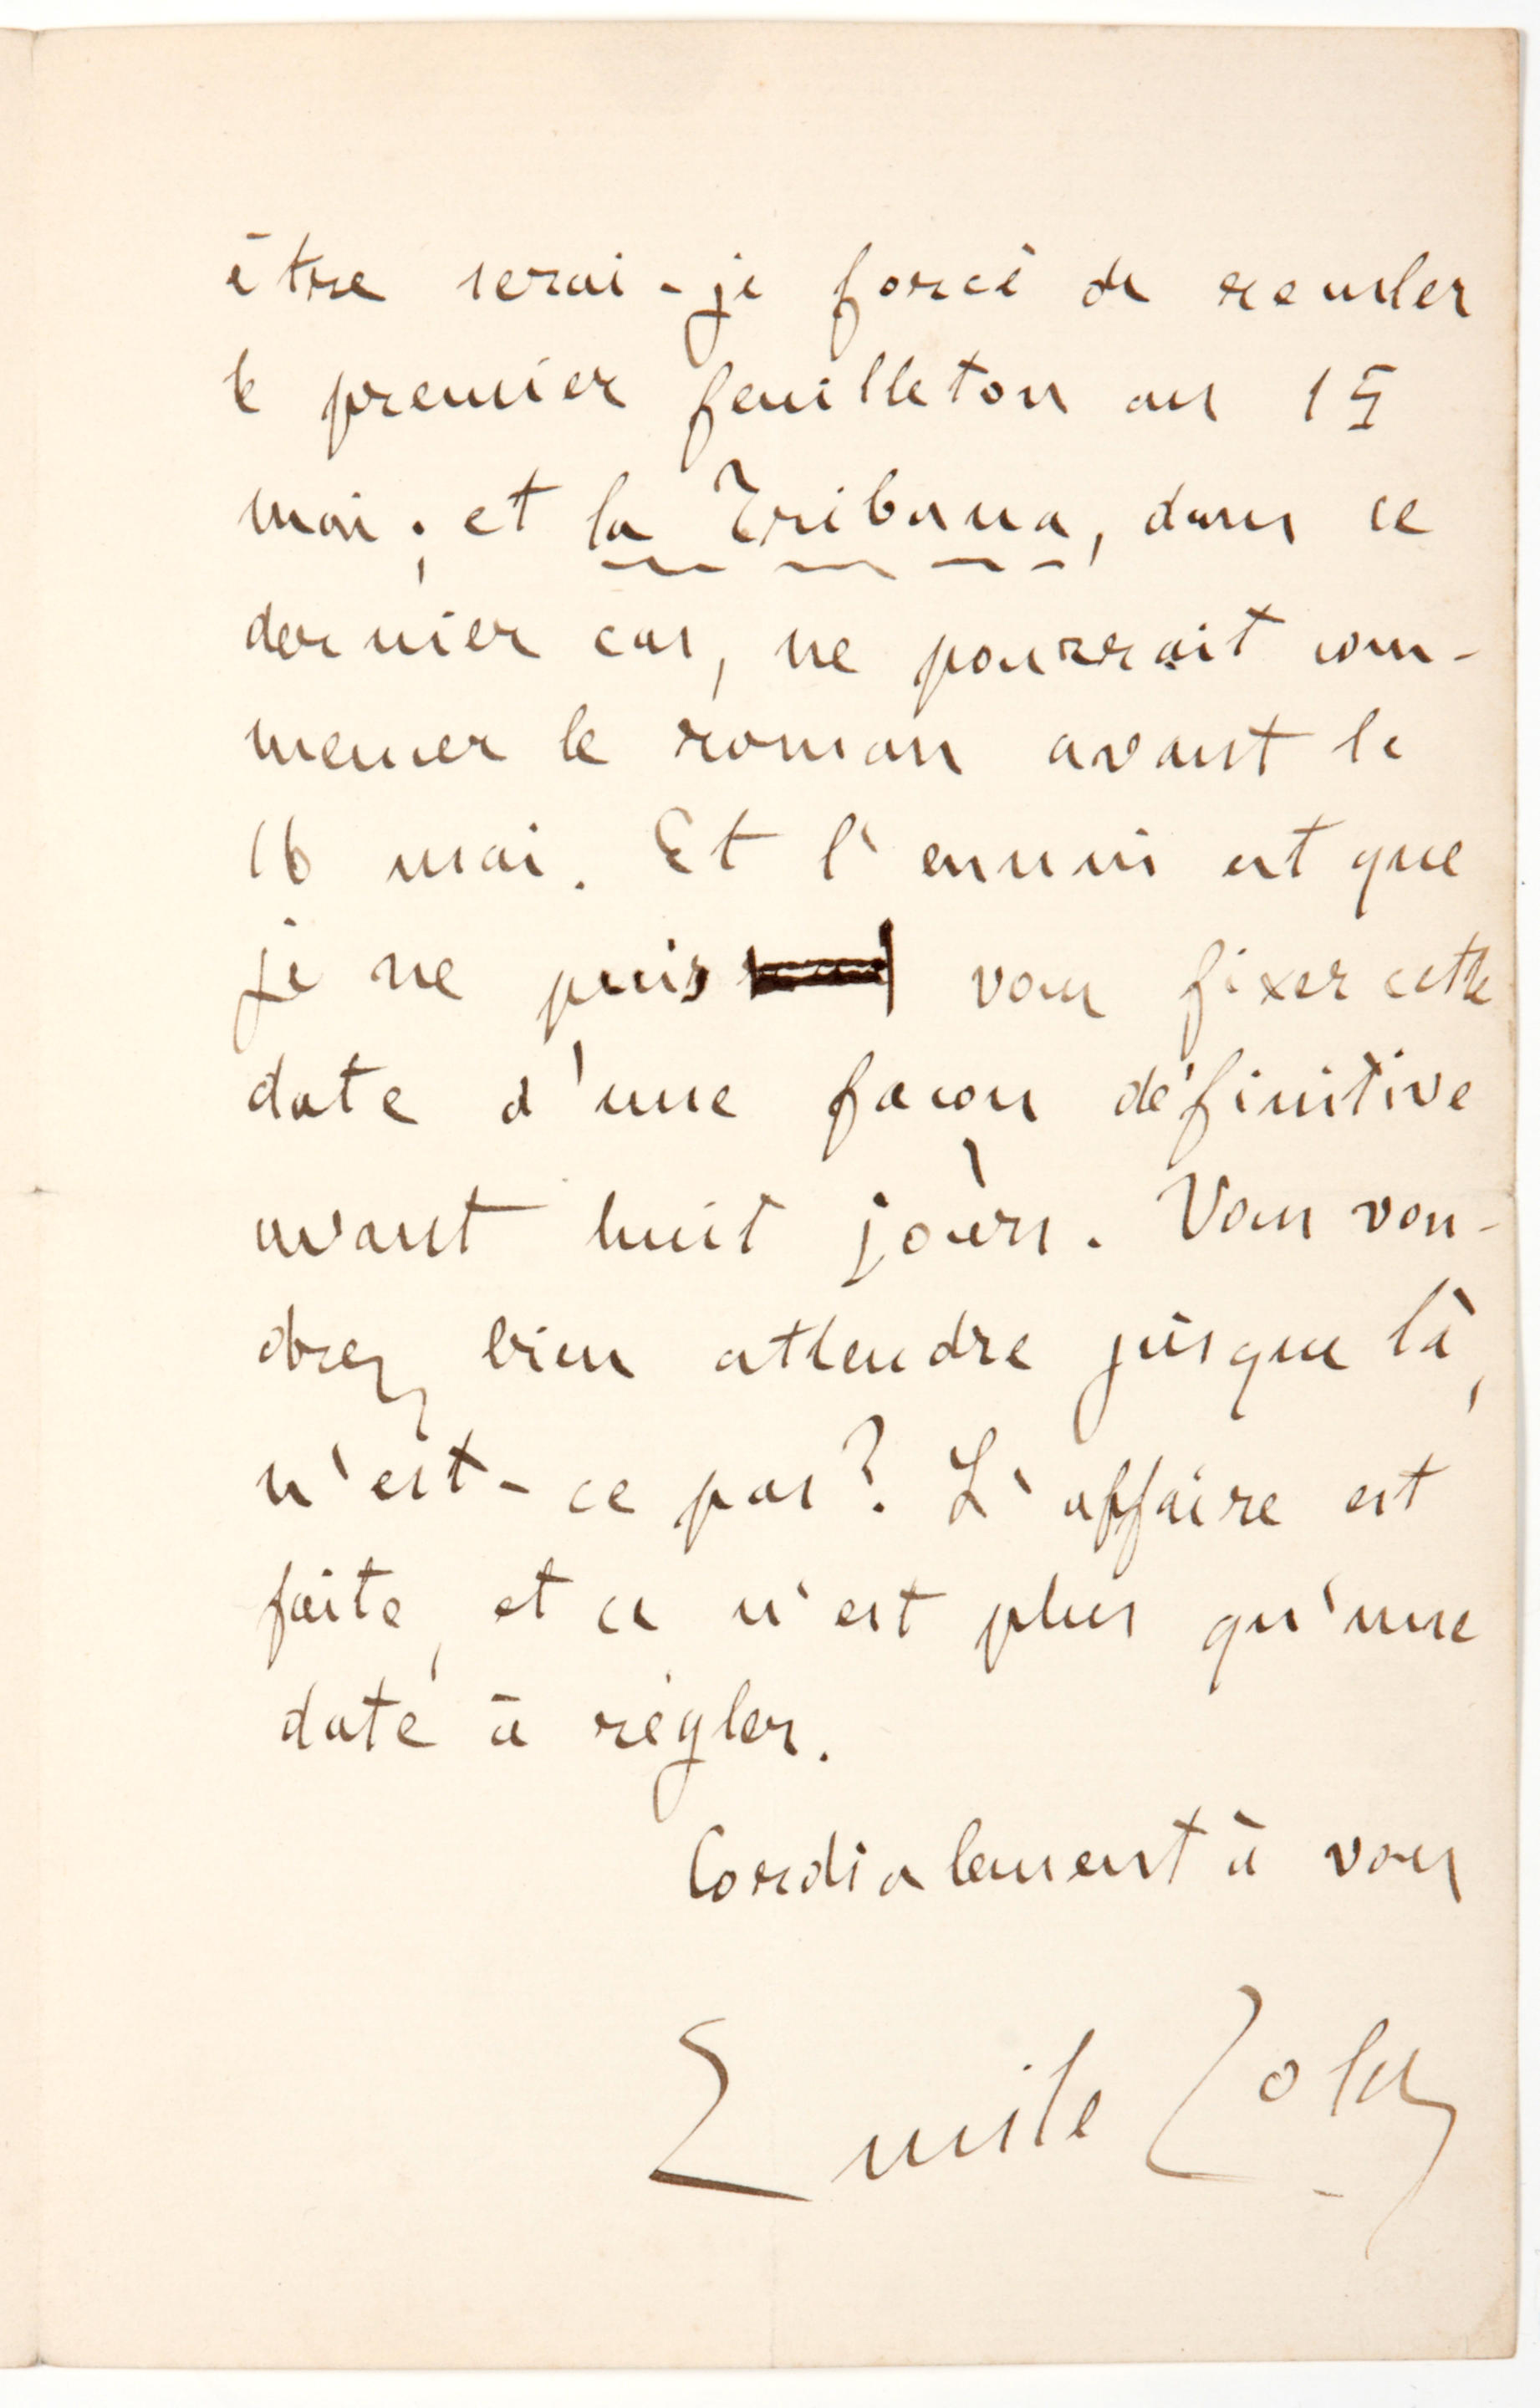 être serai-je forcé de reculer
le premier feuilleton au 15
mai ; et la Tribuna, dans ce
dernier cas, ne pourrait com-
mencer le roman avant le
16 mai. Et l'ennui est que
je ne puis vous fixer cette
date d'une façon définitive
avant huit jours. Vous vou-
drez bien attendre jusque là,
n'est-ce pas ? L'affaire est
faite, et ce n'est plus qu'une
date à régler.
Cordialement à vous
Emile Zola